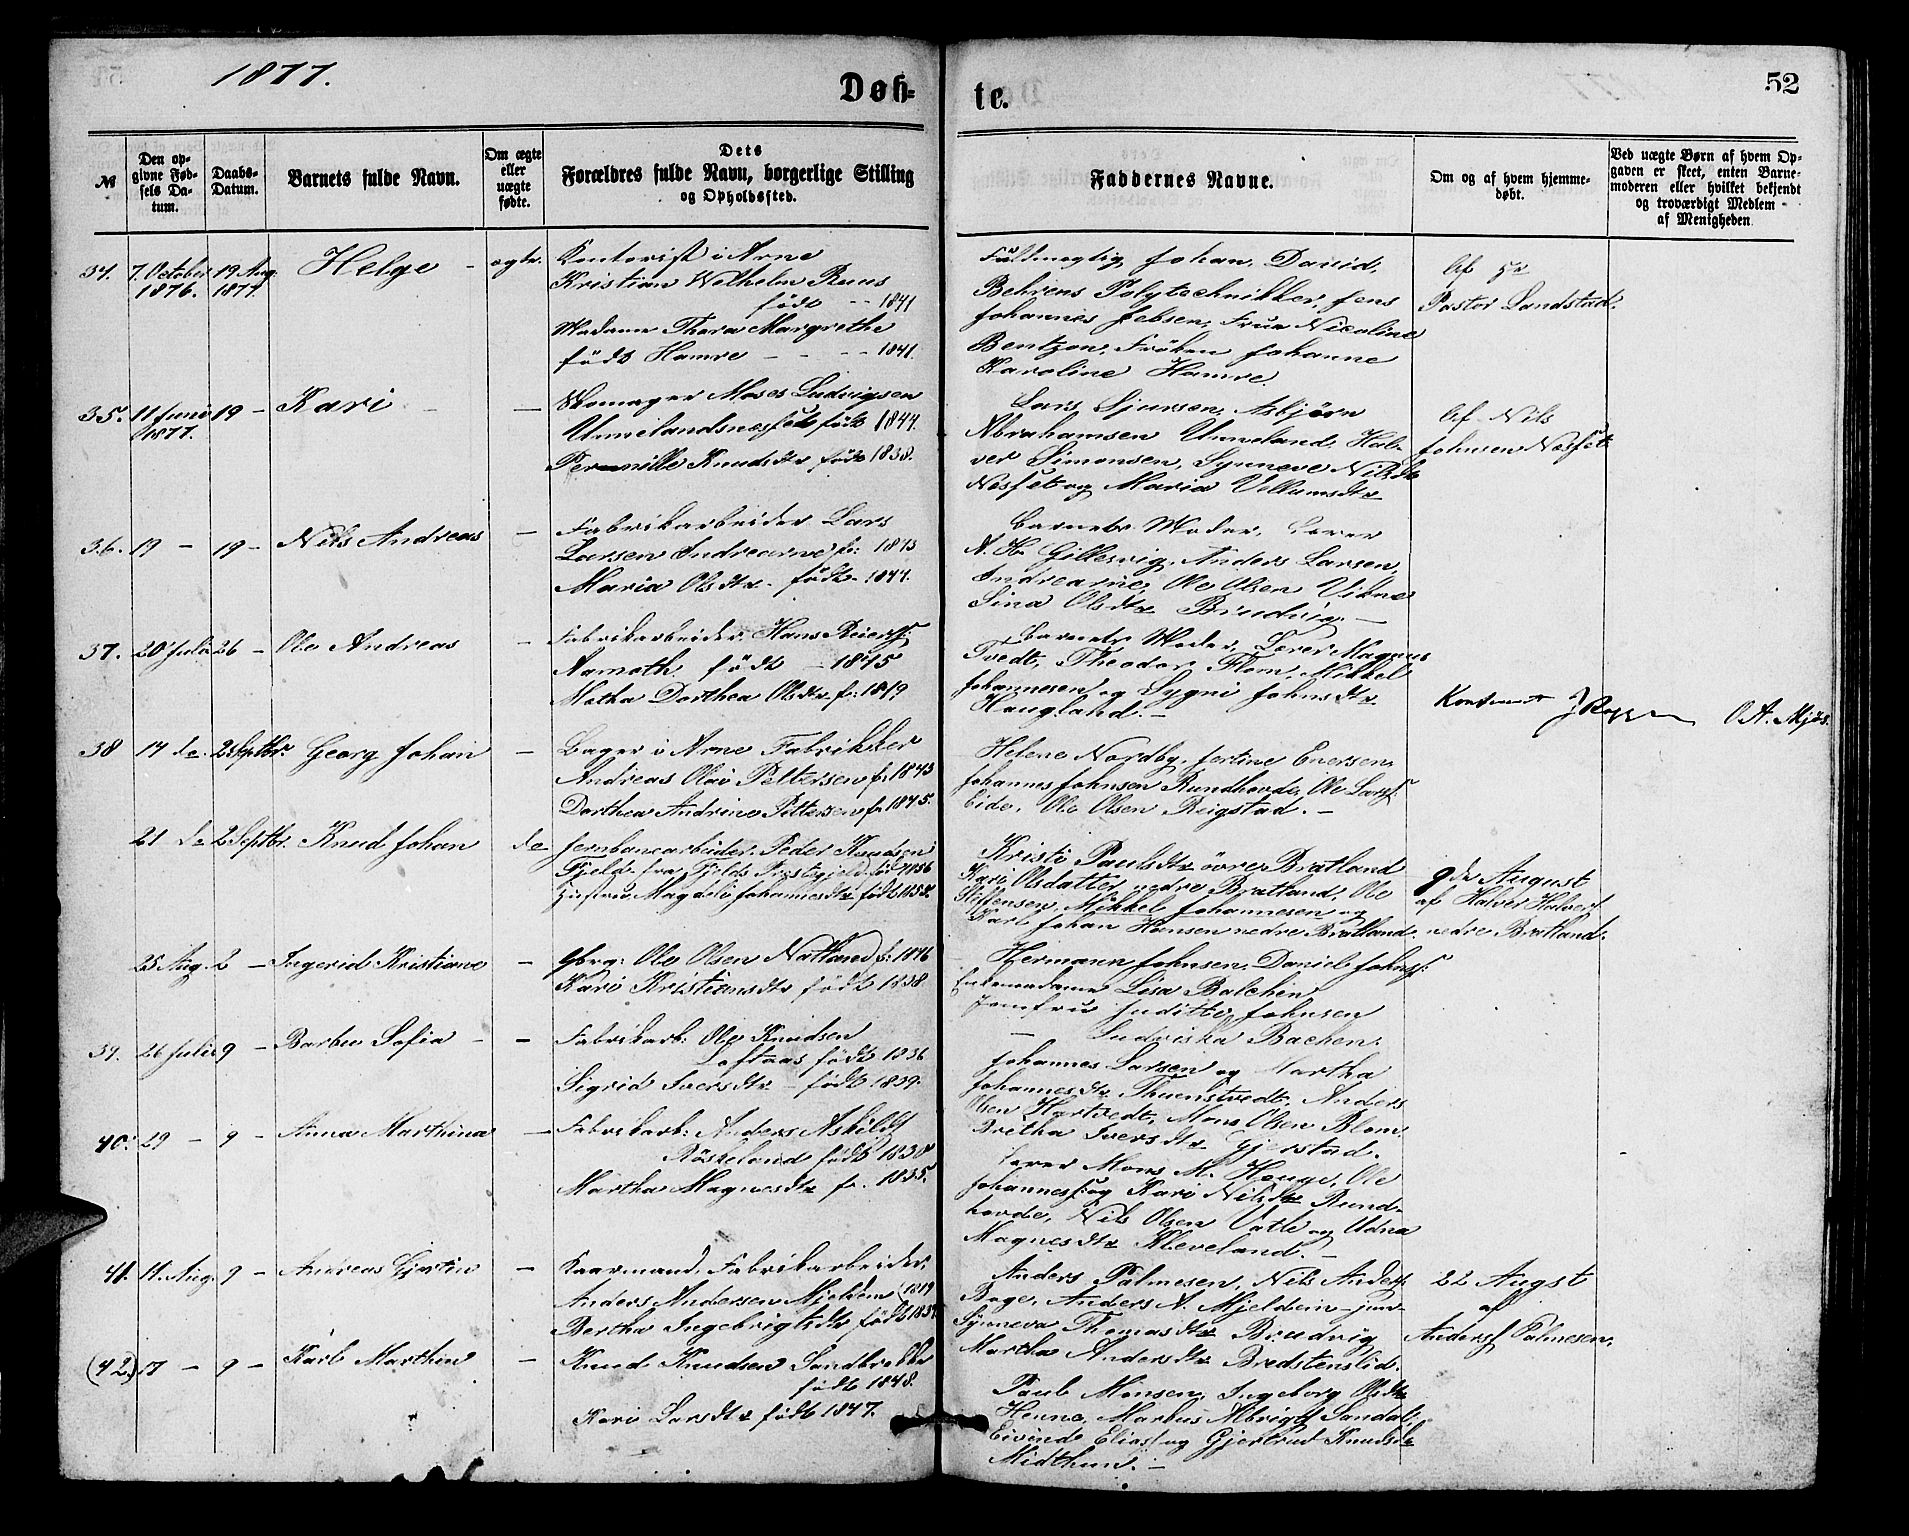 1877.
Døb-
te.
52
№
Den op-
givne Fød-
sels Da-
tum.
Daabs-
Datum.
Barnets fulde Navn.
Om ægte
eller
uægte
fødte.
Dets
Forældres fulde Navn, borgerlige Stilling
og Opholdssted.
Faddernes Navne.
Om og af hvem hjemme-
døbt.
Ved uægte Børn af hvem Op-
gaven er skeet, enten Barne-
moderen eller hvilket bekjendt
og troværdigt Medlem
af Menigheden.
34. 7. October 1876. 19 Aug. 1877. Helge - ægte.
Kontorist i Arne
Kristian Wilhelm Ruus
født - - 1841
Madame Thora Margrethe
født Hamre - - - - 1841.
Fuldmægtig Johan David
Behrens Polytechnikker, Jens
Johannes Jebsen, Frue Nicoline
Bentzon, Frøken Johanne
Karoline Hamre.
Af Sr
Pastor Landstad.
35. 11 Juni 1877. 19 - Kari - -
Skomager Moses Ludvigsen
Unnelandsnæsset født 1844.
Pernille Knudsdtr født 1838.
Lars Sjursen, Asbjørn
Abrahamsen Unneland, Hal-
ver Simonsen, Synneve Nilsdtr
Næsset og Maria Vellumsdtr
Af Nils
Johnsen Næsset
36. 19 - 19 - Nils Andreas -
Fabrikarbeider Lars
Larsen Indrearne f: 1843
Maria Olsdtr - født - 1844.
Barnets Moder, Lærer
A. H. Gillesvig, Anders Larsen
Indrearne, Ole Olsen Vikne
Sina Olsdtr Brudvig. -
37. 20 Juli 26 - Ole Andreas -
Fabrikarbeider Hans Reiers:
Aamoth født - 1845
Matha Dorthea Olsdtr f: 1849
Barnets Moder, Lærer Magnus
Tvedt, Theodor Flem, Mikkel
Johannesen og Sygni Johnsdtr
Haugland. -
O A. Mjøs.
38 14 do. 2 Septbr. Georg Johan -
Bager i Arne Fabrikker
Andreas Olai Pettersen f: 1843
Dorthea Andrine Pettersen f. 1845.
Helene Nordby, Jertine Eversen,
Johannes Johnsen Rundhovde, Ole Lars:
Eide, Ole Olsen Reigstad. -
21 do 2 Septbr. Knud Johan do
Jernbanearbeider Peder Knudsen
Fjeld fra Fjelds Præstegjeld, født 1856
Hustru Magdeli Johannesdtr født 1855.
Kristi Paulsdtr øvre Bratland
Kari Olsdatter nedre Bratland, Ole
Steffensen, Mikkel Johannesen og
Karl Johan Hansen nedre Bratland.
9de August
af Halver Halvers:
nedre Bratland.
25 Aug. 2 - Ingerid Kristiane -
Gbrg: Ole Olsen Natland f: 1846
Kari Kristiansdtr født 1838.
Hermann Johnsen, Daniel Johns:
Enkemadame Lisa Balchen
Jomfru Juditte Johnsen
- Ludviska Bachen.
39. 26 Juli 9 - Barbru Sofia - -
Fabrikarb: Ole Knudsen
Loftaas født 1836
Sigrid Iversdtr - født 1839.
Johannes Larsen og Martha
Johannesdtr Thunstvedt, Anders
Olsen Hartvedt, Mons Olsen Blom.
Britha Iversdtr Gjerstad.
40. 29 - 9 - Anna Marthina -
Fabrikarb: Anders Askilds
Røskeland født 1830
Martha Magnesdtr f. 1835.
Lærer Mons M. Hauge, Ole
Johannes: og Kari Nilsdtr Rund-
hovde, Nils Olsen Vatle og Udna
Magnesdtr Kleveland. -
41. 11. Aug. 9 - Andreas Gjertin -
Kaarmand, Fabrikarbeider,
Anders Andersen Mjeldem (1819
Bertha Ingebrigtsdtr født 1837
Anders Palmesen, Nils Anders:
Boge, Anders A. Mjeldem jun-
Synneva Thomasdtr Brudvig
Martha Andersdtr Bredstenslid.
22 Augst
af
Anders Palmesen.
(42.) 17 - 9 - Karl Marthin -
Knud Knudsen Sandbrekke
født 1848.
Kari Larsdtr født 1847.
Paul Monsen, Ingeborg Olsdtr
Henne, Markus Albrigts Sandal,
Eivind Elias: og Gjertrud Knudsdtr
Midthun. -